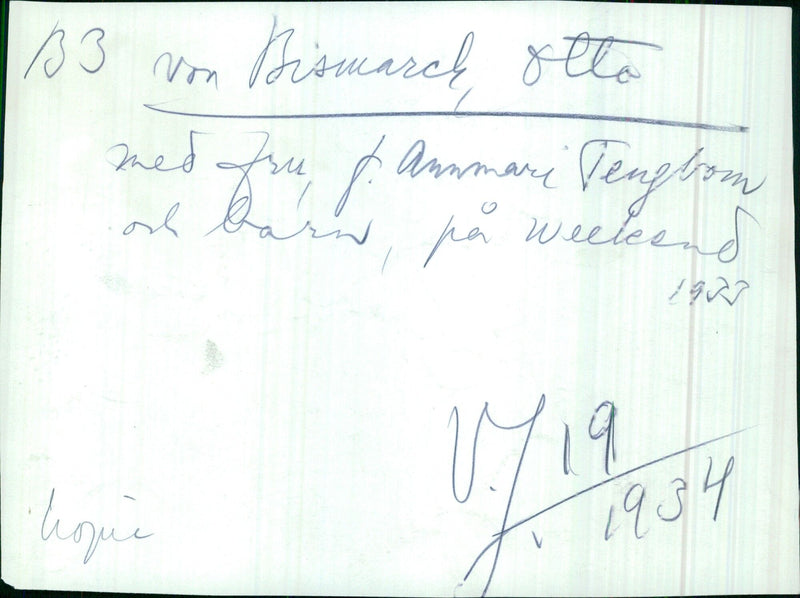 B3 von Bismarck, Otto
med fru, f. Annmari Tengbom
och barn, på Weekend
1933
V.J. 19/1934
kopie